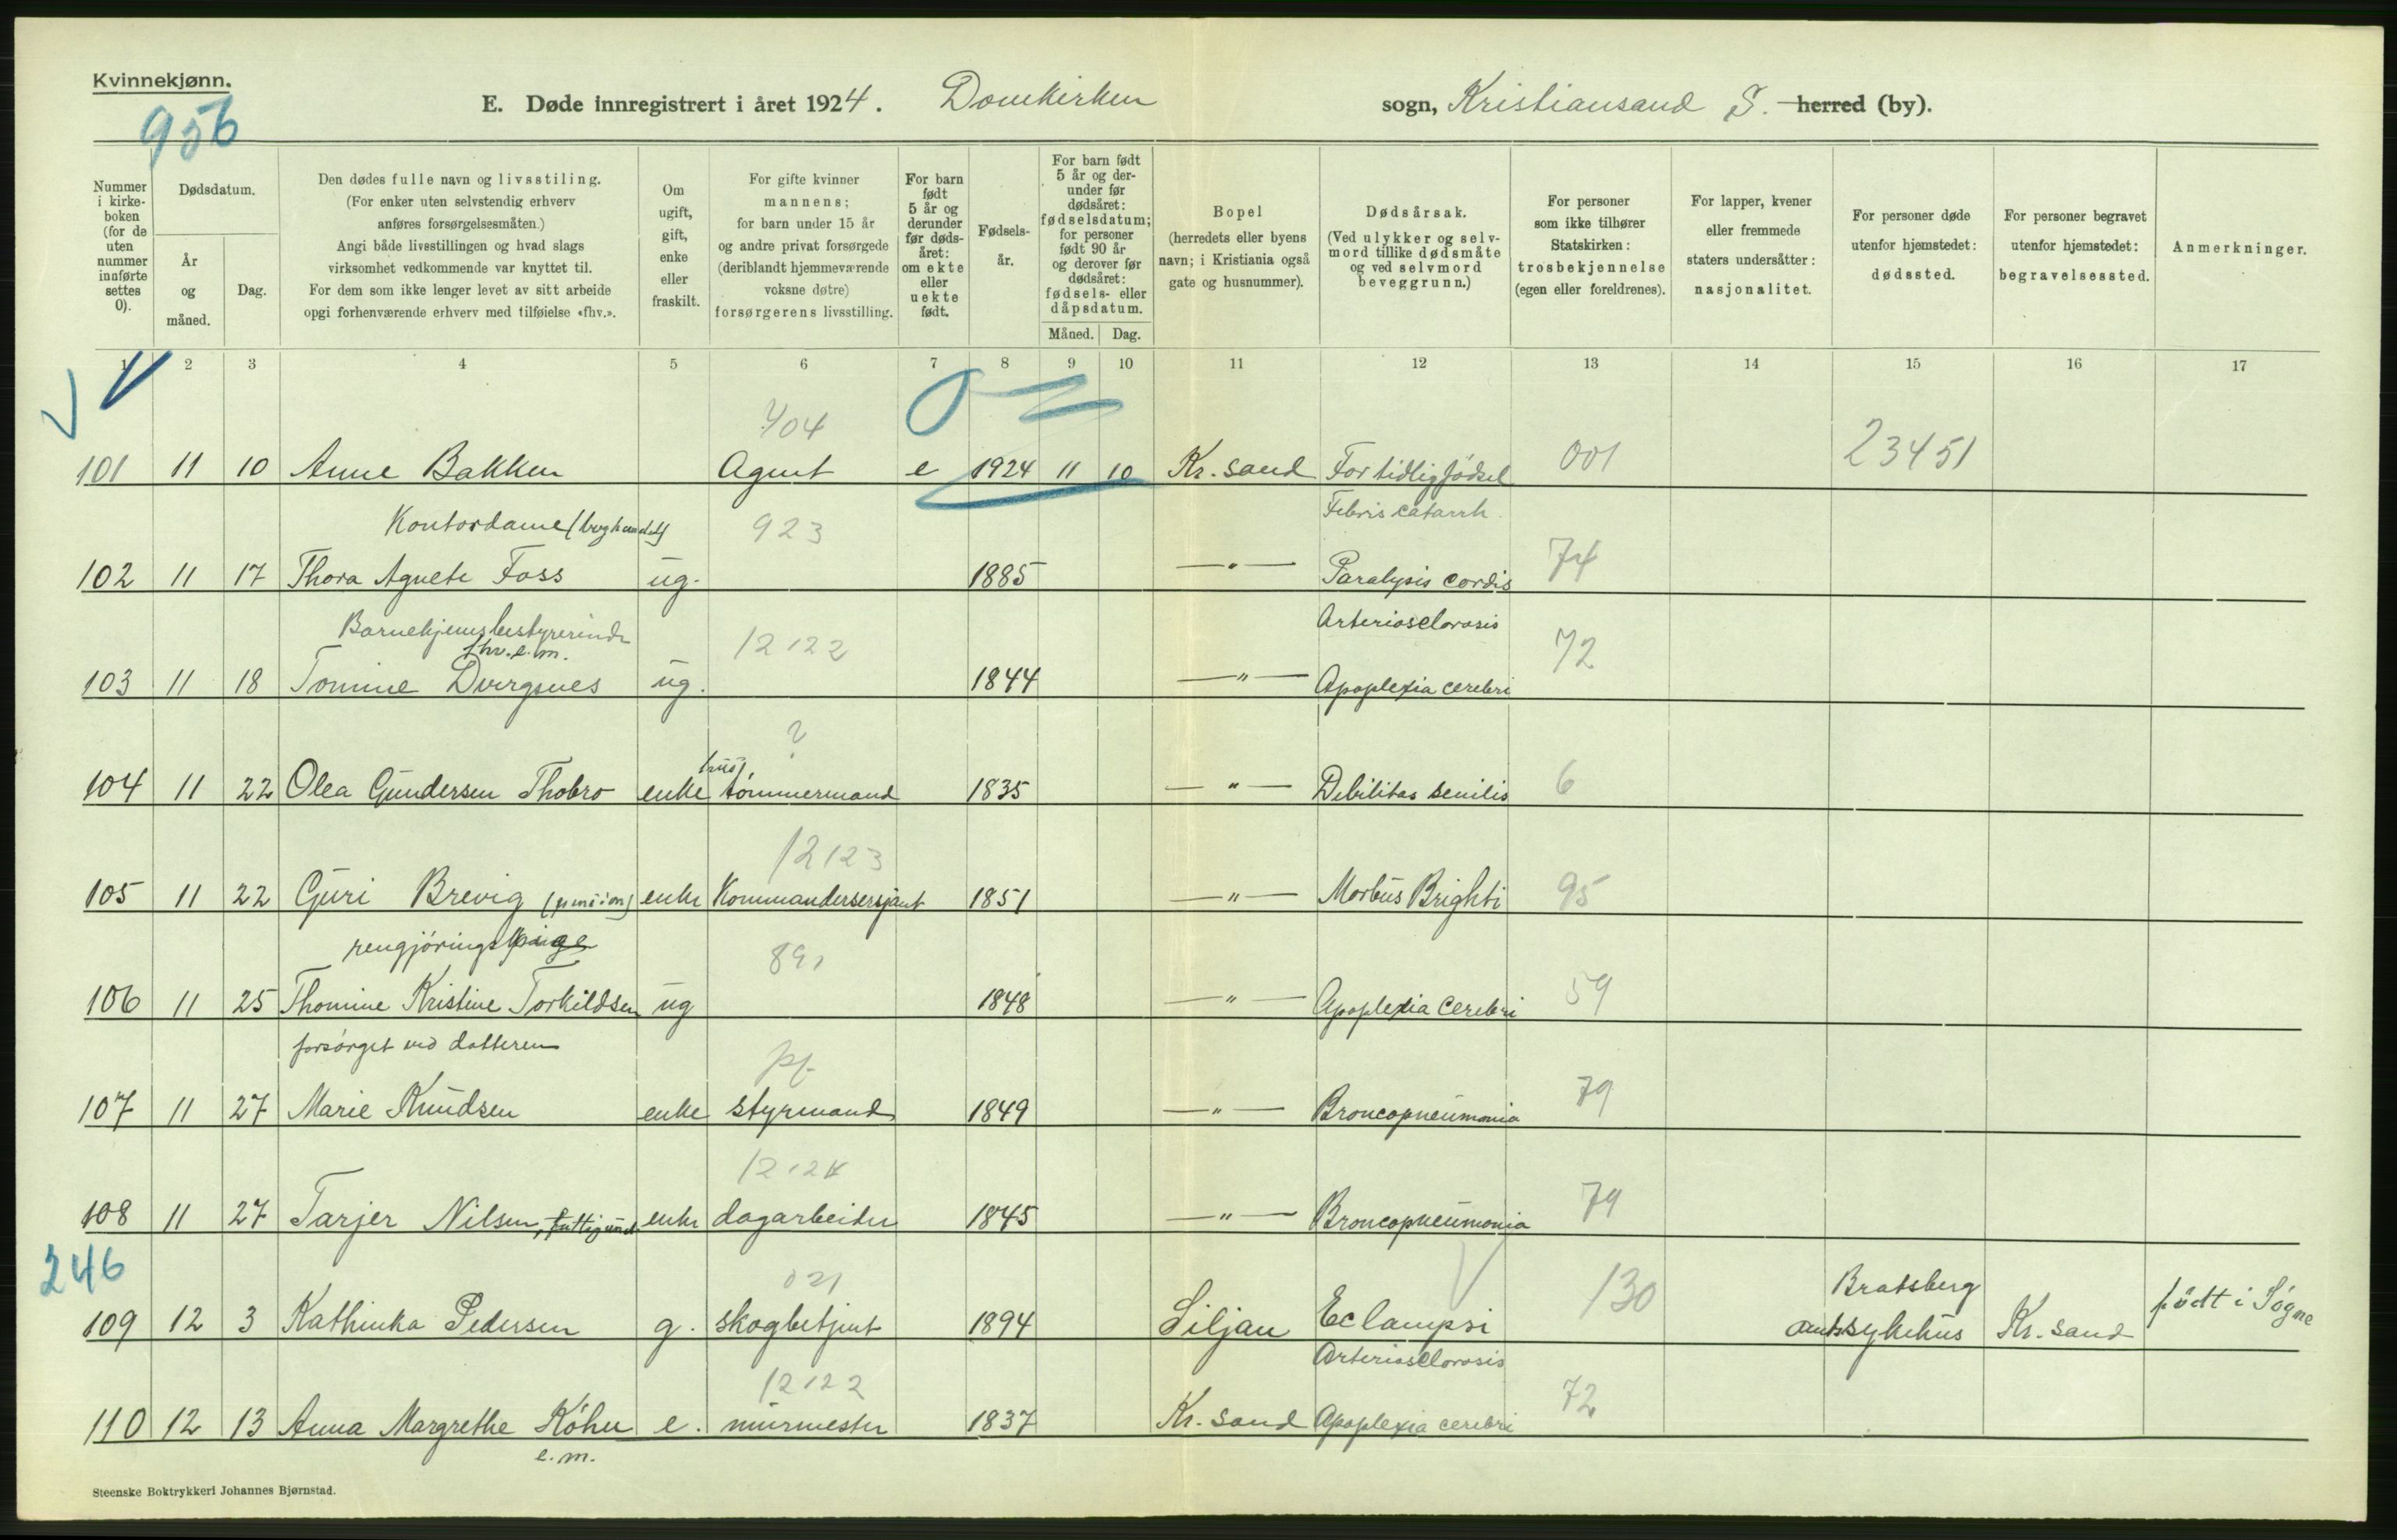 Kvinnekjønn.
956
E. Døde innregistrert i året 1924. Domkirken sogn, Kristiansand S. herred (by).
Nummer i kirke-boken (for de uten nummer innførte settes 0).
Dødsdatum.
År og måned.
Dag.
Den dødes fulle navn og livsstiling.
(For enker uten selvstendig erhverv
anføres forsørgelsesmåten.)
Angi både livsstillingen og hvad slags
virksomhet vedkommende var knyttet til.
For dem som ikke lenger levet av sitt arbeide
opgi forhenværende erhverv med tilføielse «fhv.».
Om ugift, gift, enke eller fraskilt.
For gifte kvinner
mannens;
for barn under 15 år
og andre privat forsørgede
(deriblandt hjemmeværende
voksne døtre)
forsørgerens livsstilling.
For barn født 5 år og derunder før døds-året: om ekte eller uekte født.
Fødsels-år.
For barn født 5 år og der-under før dødsåret: fødselsdatum; for personer født 90 år og derover før dødsåret: fødsels- eller dåpsdatum.
Måned. Dag.
Bopel
(herredets eller byens
navn; i Kristiania også
gate og husnummer).
Dødsårsak.
(Ved ulykker og selv-
mord tillike dødsmåte
og ved selvmord
beveggrunn.)
For personer
som ikke tilhører
Statskirken:
trosbekjennelse
(egen eller foreldrenes).
For lapper, kvener
eller fremmede
staters undersåtter:
nasjonalitet.
For personer døde
utenfor hjemstedet:
dødssted.
For personer begravet
utenfor hjemstedet:
begravelsessted.
Anmerkninger.
1 2 3 4 5 6 7 8 9 10 11 12 13 14 15 16 17
704
101 11 10 Anne Bakken Agent e 1924 11 10 Kr. sand For tidlig fødsel 001 23451
Kontordame (boghandel) 923 Febris catarrh.
102 11 17 Thora Agnete Foss ug. 1885 —"— Paralysis cordis 74
Barnehjemsbestyrerinde 12122 Arteriosclerosis
fhv. e. m.
103 11 18 Tomine Dvergsnes ug. 1844 —"— Apoplexia cerebri 72
?
104 11 22 Olea Gundersen Thobro enke tømmermand 1835 —"— Debilitas senilis 6
12123
105 11 22 Guri Brevig (pension) enke Kommandersersjant 1851 —"— Morbus Brighti 95
rengjøringspige 891
106 11 25 Thomine Kristine Torkildsen ug 1848 —"— Apoplexia cerebri 59
forsørget ved datteren pf.
107 11 27 Marie Knudsen enke styrmand 1849 —"— Broncopneumonia 79
1212x
108 11 27 Tarjer Nilsen, fattigund. enke dagarbeider 1845 —"— Broncopneumonia 79
246
021 Bratsberg
109 12 3 Kathinka Pedersen g. skogbetjent 1894 Siljan Eclampsi 130 amtssykehus Kr. sand født i Søgne
12122 Arteriosclerosis
110 12 13 Anna Margrethe Köhn e. murmester 1837 Kr. sand Apoplexia cerebri 72
e. m.
Steenske Boktrykkeri Johannes Bjørnstad.